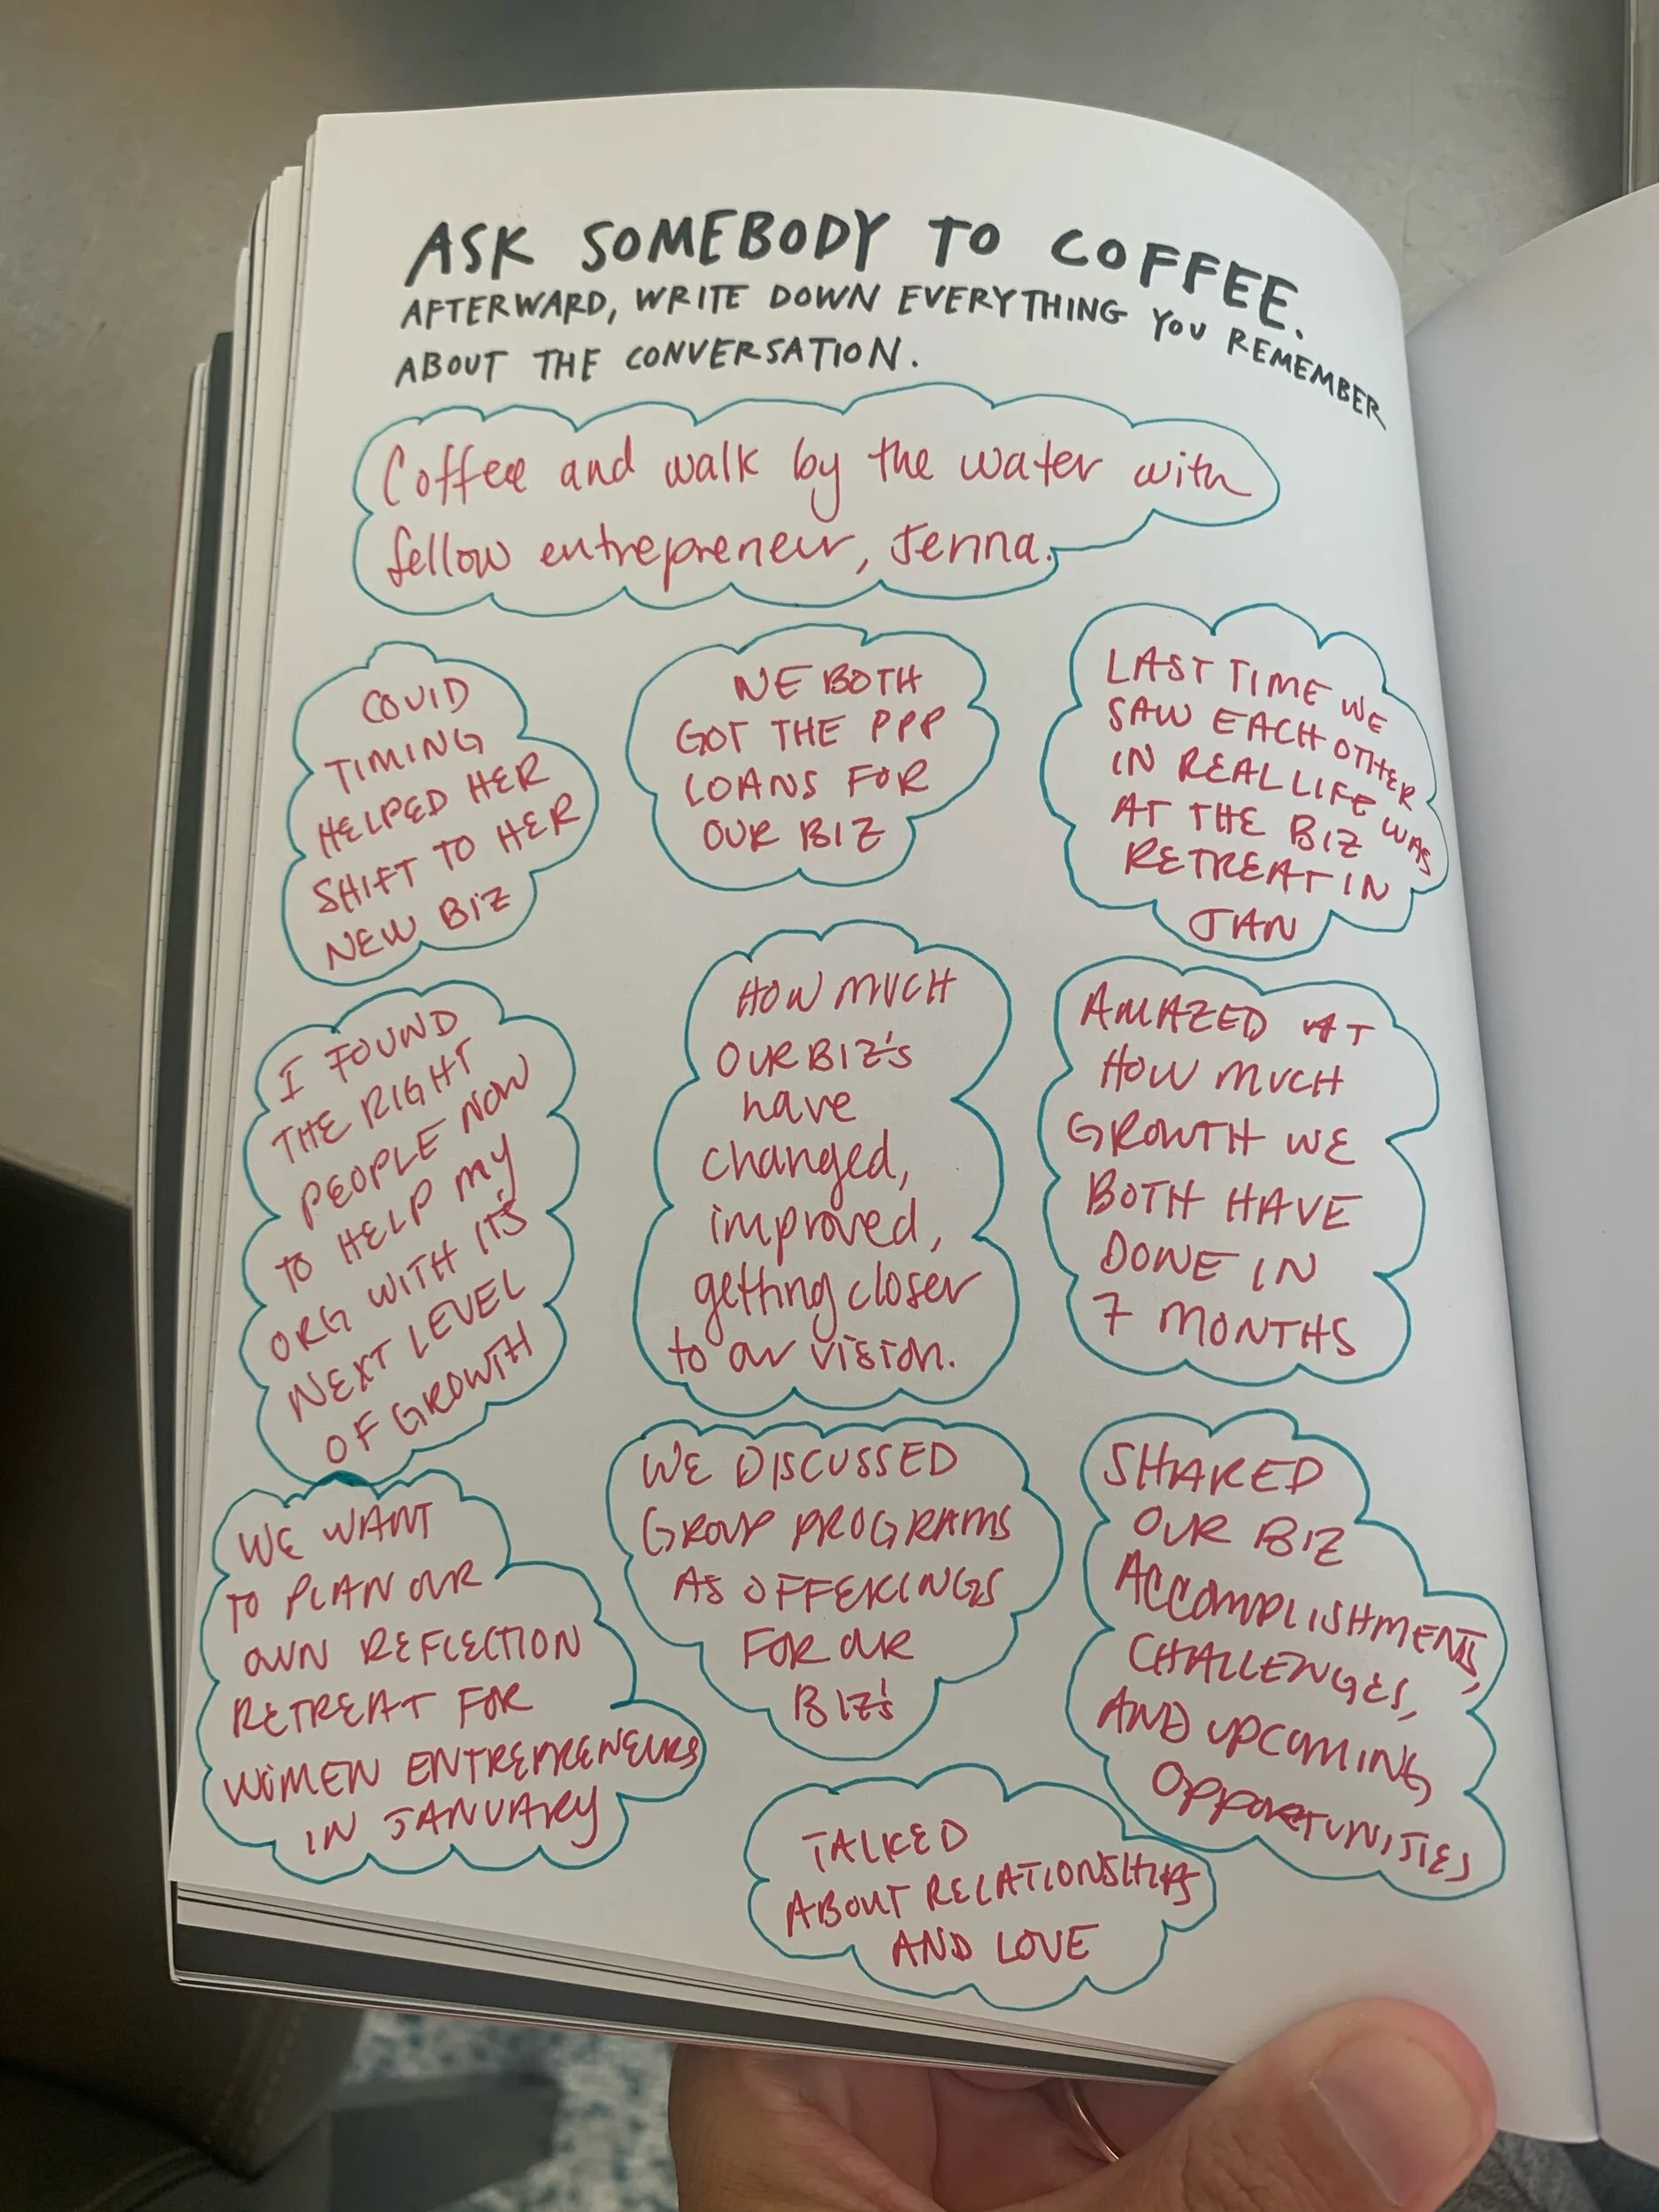 ASK SOMEBODY TO COFFEE.
AFTERWARD, WRITE DOWN EVERYTHING YOU REMEMBER
ABOUT THE CONVERSATION.
Coffee and walk by the water with
fellow entrepreneur, Jenna.
COVID
TIMING
HELPED HER
SHIFT TO HER
NEW BIZ
WE BOTH
GOT THE PPP
LOANS FOR
OUR BIZ
LAST TIME WE
SAW EACH OTHER
IN REAL LIFE WAS
AT THE BIZ
RETREAT IN
JAN
I FOUND
THE RIGHT
PEOPLE NOW
TO HELP MY
ORG WITH IT'S
NEXT LEVEL
OF GROWTH
HOW MUCH
OUR BIZ'S
have
changed,
improved,
getting closer
to our vision.
AMAZED AT
HOW MUCH
GROWTH WE
BOTH HAVE
DONE IN
7 MONTHS
WE WANT
TO PLAN OUR
OWN REFLECTION
RETREAT FOR
WOMEN ENTREPRENEURS
IN JANUARY
WE DISCUSSED
GROUP PROGRAMS
AS OFFERINGS
FOR OUR
BIZ'S
SHARED
OUR BIZ
ACCOMPLISHMENTS,
CHALLENGES,
AND UPCOMING
OPPORTUNITIES
TALKED
ABOUT RELATIONSHIPS
AND LOVE